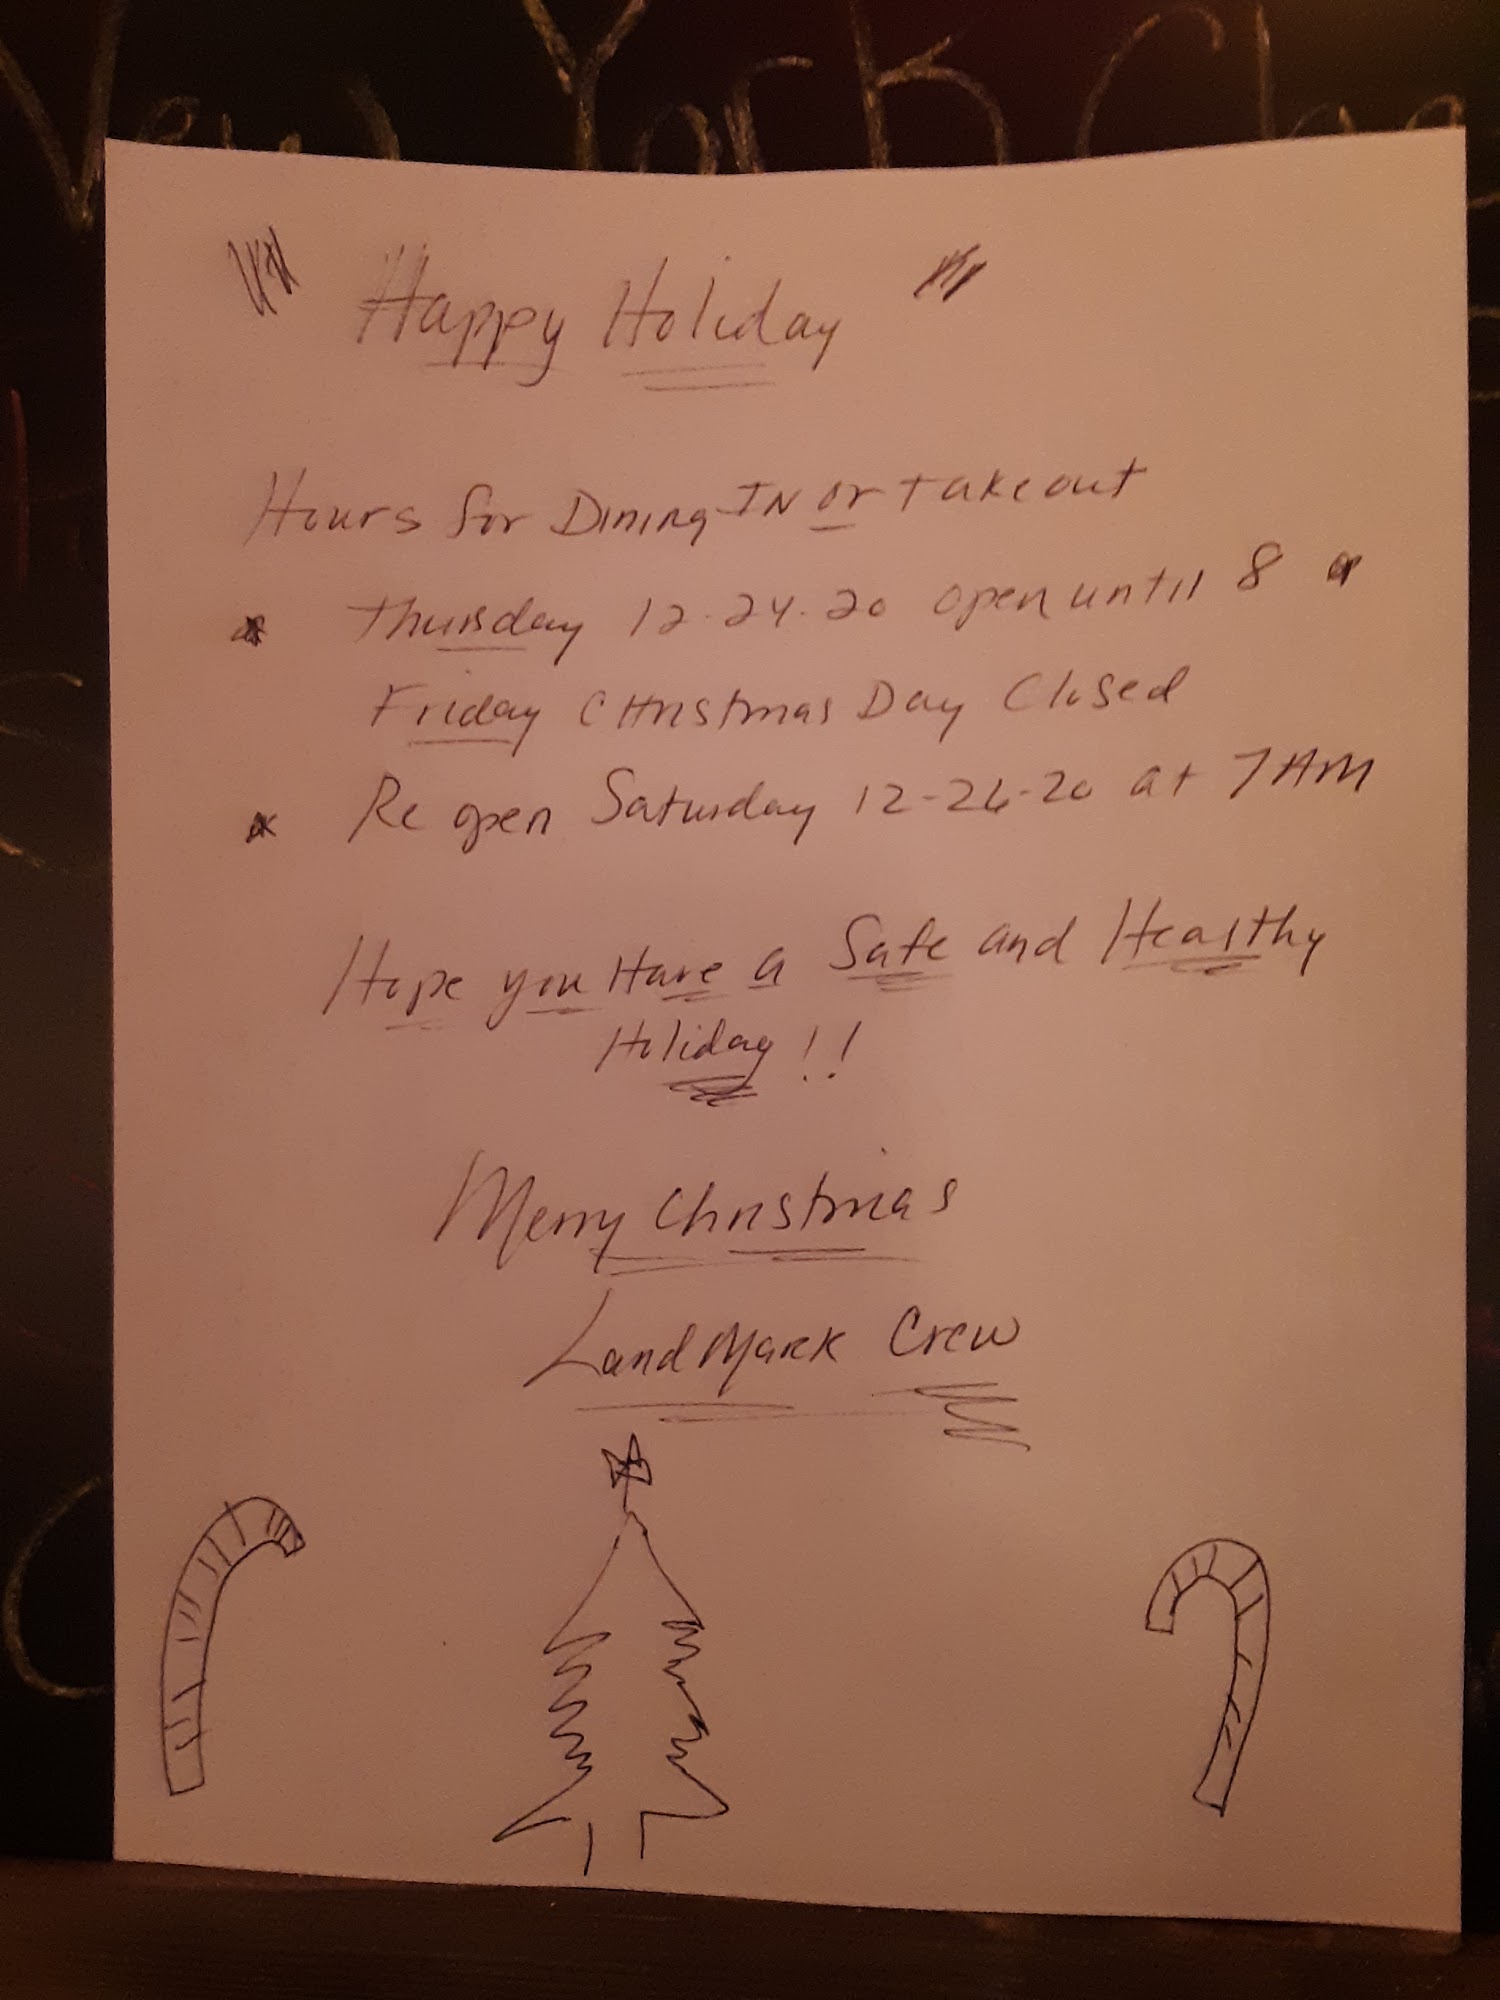 New York Chee
" Happy Holiday "
Hours for Dining IN or takeout
* Thursday 12-24-20 open until 8 *
Friday CHristmas Day Closed
* Re open Saturday 12-26-20 at 7 AM
Hope you Have a Safe and Healthy
Holiday!!
Merry Christmas
LandMark Crew